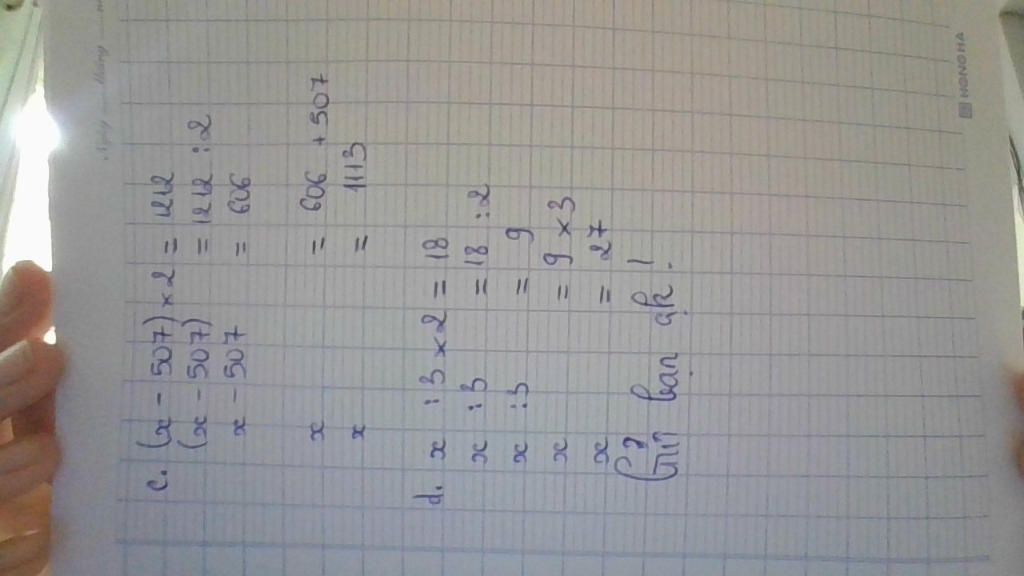 Ngày
HONGHA
c. (x - 507) × 2 = 1212
(x - 507) = 1212 : 2
x - 507 = 606
x = 606 + 507
x = 1113
d. x : 3 × 2 = 18
x : 3 = 18 : 2
x : 3 = 9
x = 9 × 3
x = 27
bạn ạk !